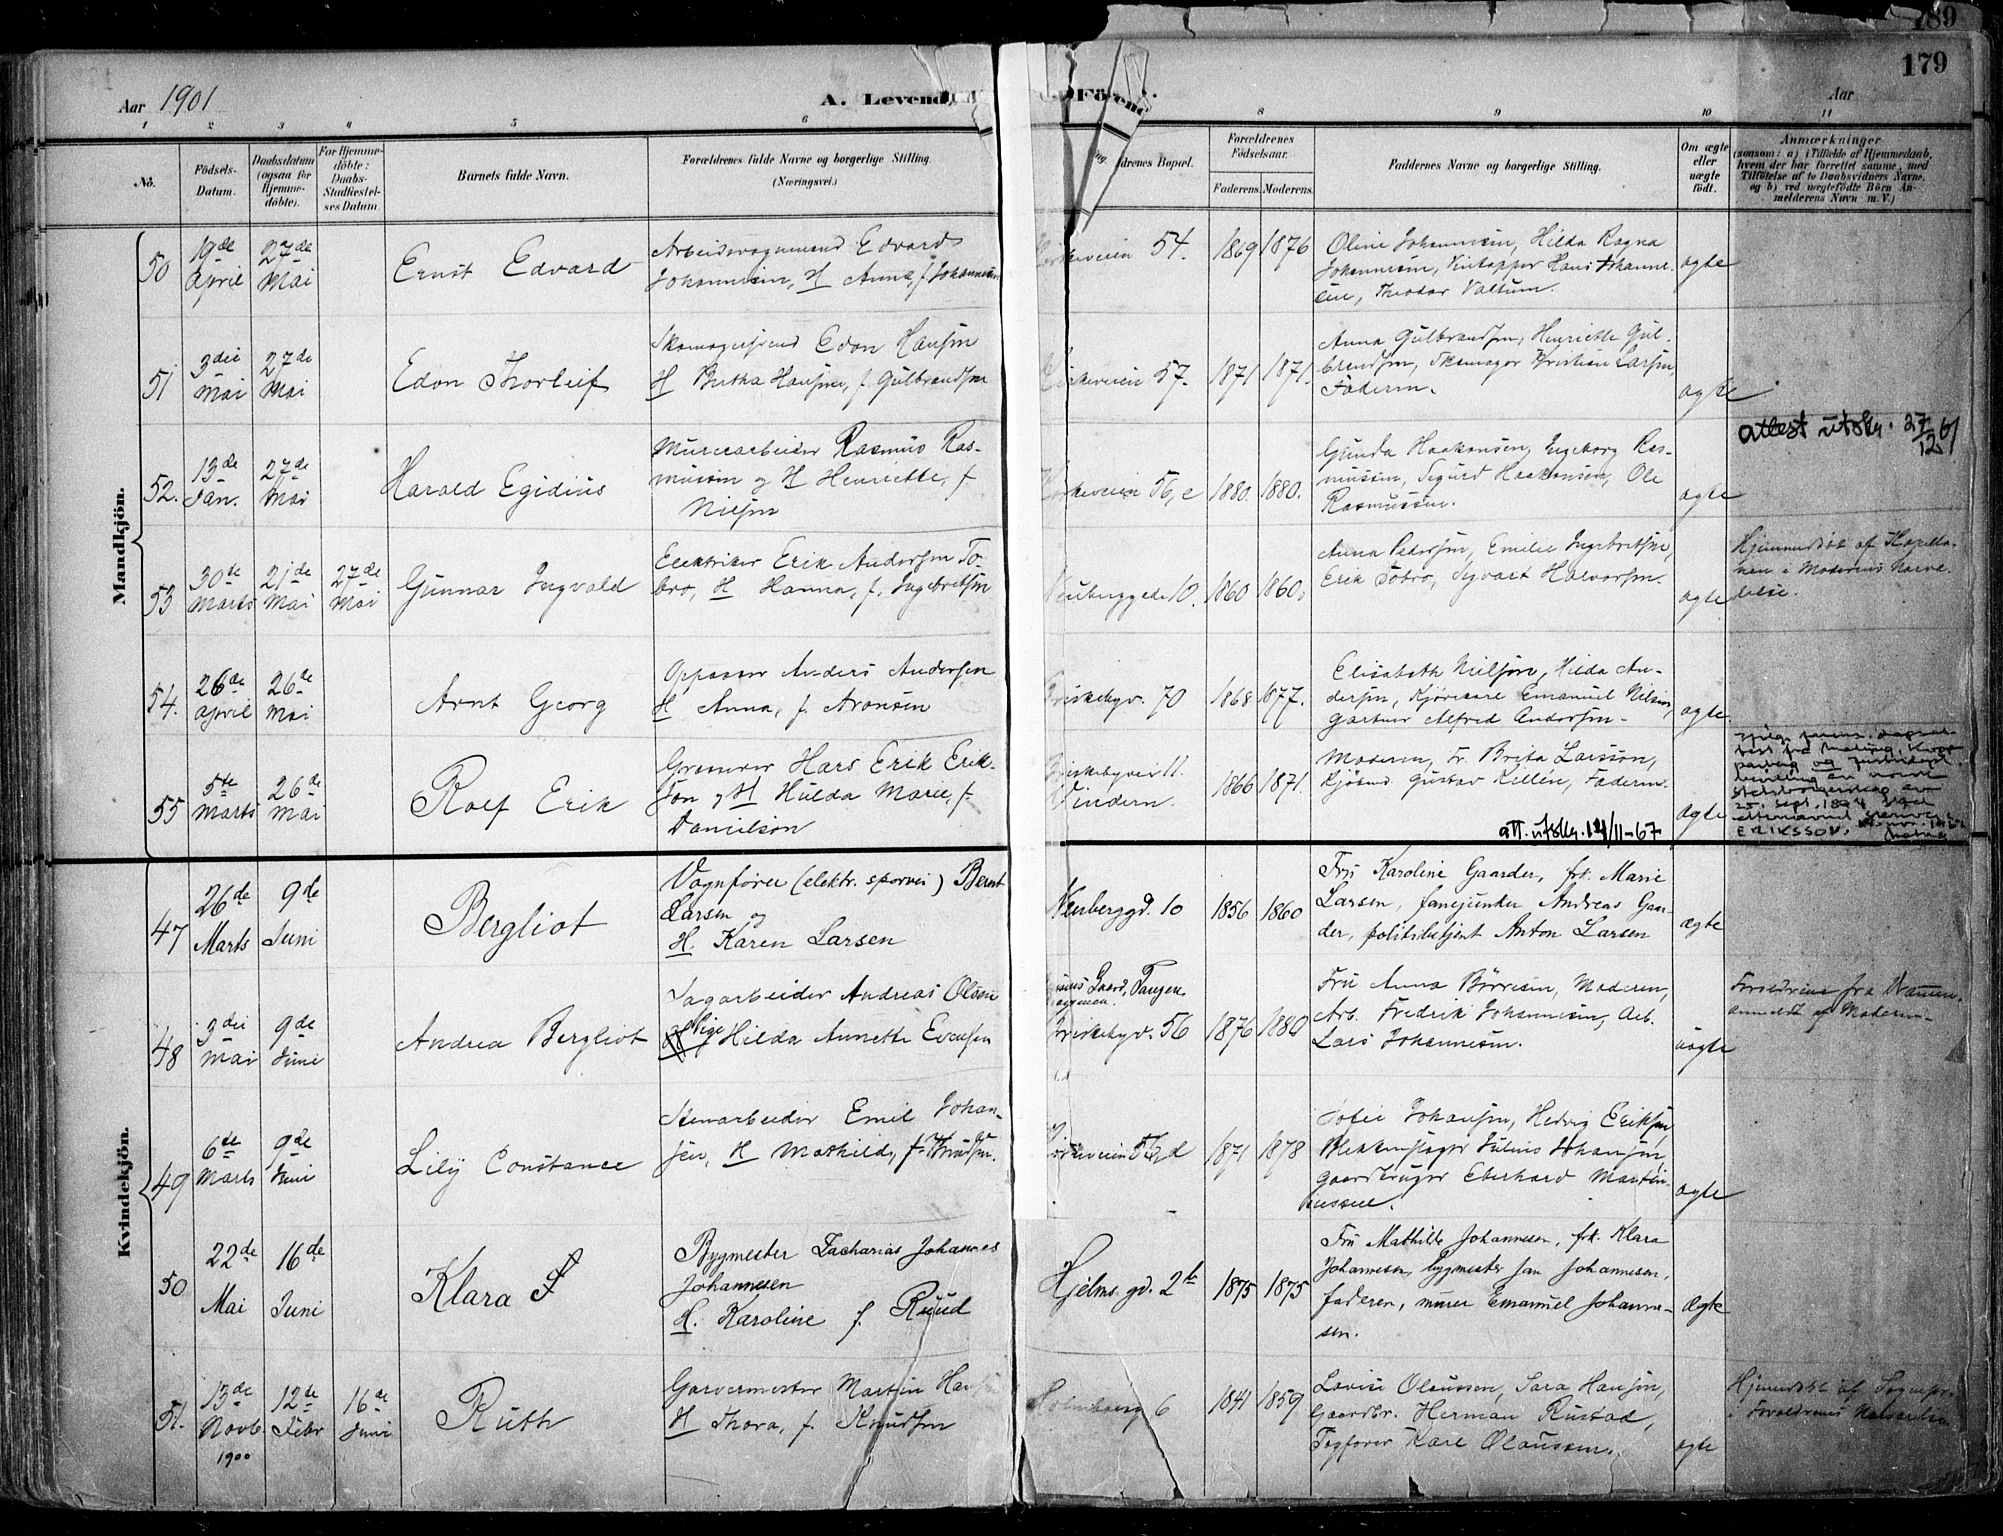 189
179
Aar 1901
A. Levende
Födte.
Aar
1 2 3 4 5 6 8 9 10 11
No.
Födsels-
Datum.
Daabsdatum
(ogsaa for
Hjemme-
döbte).
For Hjemme-
döbte:
Daabs-
Stadfæstel-
ses Datum
Barnets fulde Navn.
Forældrenes fulde Navne og borgerlige Stilling.
(Næringsvei.)
drenes Bopæl.
Forældrenes
Födselsaar.
Faderens. Moderens.
Faddernes Navne og borgerlige Stilling.
Om ægte
eller
uægte
födt.
Anmærkninger
(saasom: a) i Tilfælde af Hjemmedaab,
hvem der har forrettet samme, med
Tilföielse af to Daabsvidners Navne,
og b) ved uægtefödte Börn An-
melderens Navn m. V.)
Mandkjön.
50
19de
April
27de
Mai
Ernst Edvard
Arbeidsvognmand Edvard
Johannesen, H Anna, f. Johannesen
Kirkeveien 54.
1869
1876
Oline Johannesen, Hilda Ragna
Johannesen, Vintapper Hans Johanne-
sen, Theodor Valtum.
ægte
51
3die
Mai
27de
Mai
Edon Thorleif
Skomagersvend Edon Hansen
H Bertha Hansen, f. Gulbrandsen
Kirkeveien 57.
1871
1871.
Anna Gulbrandsen, Henriette Gul-
brandsen, Skomager Kristian Larsen,
Faderen.
ægte
attest utskr. 27/12 61
52.
13de
Jan.
27de
Mai
Harald Egidius
Murerarbeider Rasmus Ras-
mussen og H Henriette, f
Nilsen
Kirkeveien 56, c
1880.
1880.
Gunda Haakonsen, Ingeborg Ras-
mussen, Sigurd Haakonsen, Ole
Rasmussen.
ægte
53
30de
Marts
21de
Mai
27de
Mai
Gunnar Ingvald
Elektriker Erik Andersen To-
bro, H Hanna, f. Ingebretsen
Neuberggade 10.
1860
1860.
Anna Pedersen, Emilie Ingebretsen,
Erik Tobro, Syvart Halvorsen.
ægte
Hjemmedøbt af Kapella-
nen i Moderens Nærvæ-
relse.
54.
26de
April
26de
Mai
Arnt Georg
Oppasser Anders Andersen
H Anna, f. Aronsen
Briskebyv. 70
1868
1877.
Elisabeth Nielsen, Hilda An-
dersen, Kjørekarl Emanuel Nilsen,
Gartner Alfred Andersen-
ægte.
55
5te
Marts
26de
Mai
Rolf Erik
Graverer Hars Erik Erik-
son og H Hulda Marie, f.
Danielson
Briskebyvei 11.
Vindern.
1866
1871.
Moderen, Fr. Brita Larsson,
Kjøbmd Gustav Killén, Faderen.
ægte
att. utskr. 14/11-67
25. sept. 1894
ERIKSSON.
Kvindekjön.
47
26de
Marts
9de
Juni
Bergliot
Vognfører (elektr. sporvei) Bernt
Larsen og
H. Karen Larsen
Neuberggd. 10
1856
1860
Fru Karoline Gaarder, frk. Marie
Larsen, fanejunker Andreas Gaar-
der, politibetjent Anton Larsen
ægte
48
3die
Mai
9de
Juni
Andrea Bergliot
Sagarbeider Andreas Olsen
Pige Hilda Annette Evensen
Gaard, Tangen,
Drammen.
Briskebyv. 56
1876
1880
Fru Anna Børresen, Moderen,
Arb. Fredrik Johannesen, Arb.
Lars Johannesen.
uægte
Forældrene fra Drammen.
anmeldt af Moderen-
49
6te
Marts
9de
Juni
Lily Constance
Stenarbeider Emil Johan-
sen, H Mathilde, f. Knudsen.
Kirkeveien 56, d
1871
1878
Sofie Johansen, Hedvig Eriksen,
Blikkenslager Julius Johansen,
Gaardbruger Eberhard Martin-
iussen.
ægte
50
22de
Mai
16de
Juni
Klara
Bygmester Zacharias Johannes
Johannesen
H. Karoline f. Ruud
Hjelms gd. 2b
1875
1875
Fru Mathilde Johannesen, frk. Klara
Johannesen, bygmester Jan Johannesen,
faderen, murer Emanuel Johanne-
sen.
Ægte
51.
13de
Novb.
1900
12te
Febr
16de
Juni
Ruth
Garvermester Martin Hansen
H Thora, f. Knudsen
Holmboeg 6
1841
1859
Lovise Olaussen, Sara Hansen,
Gaardbr. Herman Rustad,
Togfører Karl Olaussen.
ægte
Hjemmedøbt af Sognepr.
i Forældrenes Nærværelse